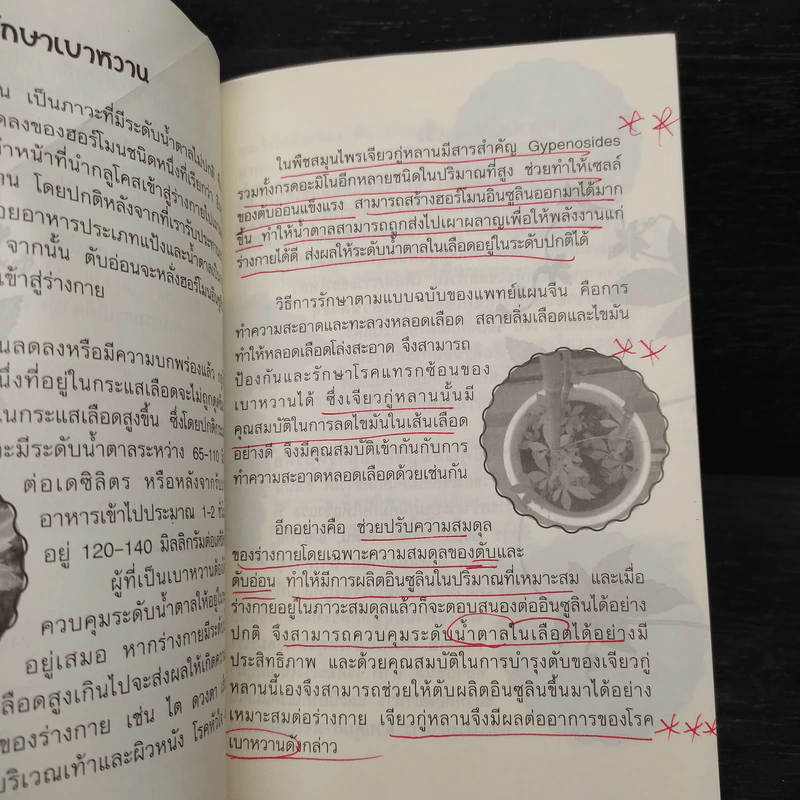 รักษาเบาหวาน
เป็นภาวะที่มีระดับน้ำตาลไม่ปกติ
ลดลงของฮอร์โมนชนิดหนึ่งที่เรียกว่า
หน้าที่นำกลูโคสเข้าสู่ร่างกายไป
โดยปกติหลังจากที่เรารับประทาน
อาหารประเภทแป้งและน้ำตาล
จากนั้น ตับอ่อนจะหลั่งฮอร์โมน
เข้าสู่ร่างกาย
ลดลงหรือมีความบกพร่องแล้ว
ที่อยู่ในกระแสเลือดจะไม่ถูก
ในกระแสเลือดสูงขึ้น ซึ่งโดยปกติ
จะมีระดับน้ำตาลระหว่าง 65-110
ต่อเดซิลิตร หรือหลังจาก
อาหารเข้าไปประมาณ 1-2
อยู่ 120-140 มิลลิกรัมต่อ
ผู้ที่เป็นเบาหวาน
ควบคุมระดับน้ำตาลให้อยู่
อยู่เสมอ หากร่างกายมีระดับ
เลือดสูงเกินไปจะส่งผลให้เกิด
ของร่างกาย เช่น ไต ดวงตา
บริเวณเท้าและผิวหนัง โรคหัวใจ
ในพืชสมุนไพรเจียวกู่หลานมีสารสำคัญ Gypenosides
รวมทั้งกรดอะมิโนอีกหลายชนิดในปริมาณที่สูง ช่วยทำให้เซลล์
ของตับอ่อนแข็งแรง สามารถสร้างฮอร์โมนอินซูลินออกมาได้มาก
ขึ้น ทำให้น้ำตาลสามารถถูกส่งไปเผาผลาญเพื่อให้พลังงานแก่
ร่างกายได้ดี ส่งผลให้ระดับน้ำตาลในเลือดอยู่ในระดับปกติได้
วิธีการรักษาตามแบบฉบับของแพทย์แผนจีน คือการ
ทำความสะอาดและทะลวงหลอดเลือด สลายลิ่มเลือดและไขมัน
ทำให้หลอดเลือดโล่งสะอาด จึงสามารถ
ป้องกันและรักษาโรคแทรกซ้อนของ
เบาหวานได้ ซึ่งเจียวกู่หลานนั้นมี
คุณสมบัติในการลดไขมันในเส้นเลือด
อย่างดี จึงมีคุณสมบัติเข้ากันกับการ
ทำความสะอาดหลอดเลือดด้วยเช่นกัน
อีกอย่างคือ ช่วยปรับความสมดุล
ของร่างกายโดยเฉพาะความสมดุลของตับและ
ตับอ่อน ทำให้มีการผลิตอินซูลินในปริมาณที่เหมาะสม และเมื่อ
ร่างกายอยู่ในภาวะสมดุลแล้วก็จะตอบสนองต่ออินซูลินได้อย่าง
ปกติ จึงสามารถควบคุมระดับน้ำตาลในเลือดได้อย่างมี
ประสิทธิภาพ และด้วยคุณสมบัติในการบำรุงตับของเจียวกู่
หลานนี้เองจึงสามารถช่วยให้ตับผลิตอินซูลินขึ้นมาได้อย่าง
เหมาะสมต่อร่างกาย เจียวกู่หลานจึงมีผลต่ออาการของโรค
เบาหวานดังกล่าว